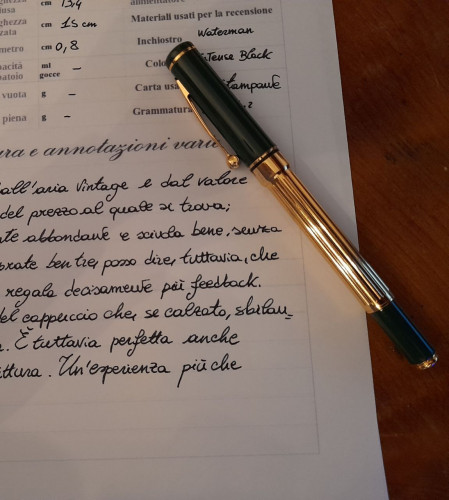 ghezza
usa cm 13,4
ghezza
zata cm 15 cm
metro cm 0,8
acità ml
batoio gocce –
vuota g –
piena g –
alimentatore
Materiali usati per la recensione
Inchiostro Waterman
Colo Intense Black
Carta usa stampante
Grammatura
ura e annotazioni vari
all'aria vintage e dal valore
del prezzo al quale si trova;
te abbondante e scivola bene, senza
ben tre, posso dire, tuttavia, che
regala decisamente più feedback.
del cappuccio che, se calzato, sbilan-
. È tuttavia perfetta anche
ittura. Un'esperienza più che